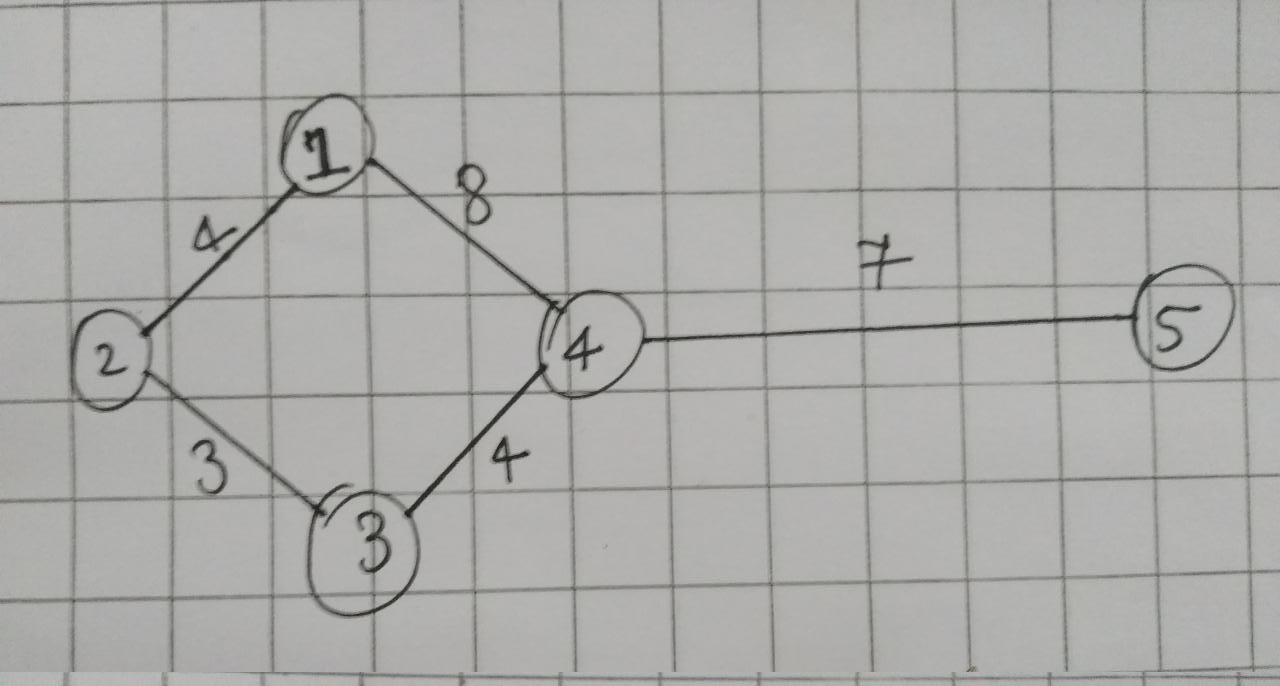 1
8
4
7
2
4
5
3
4
3